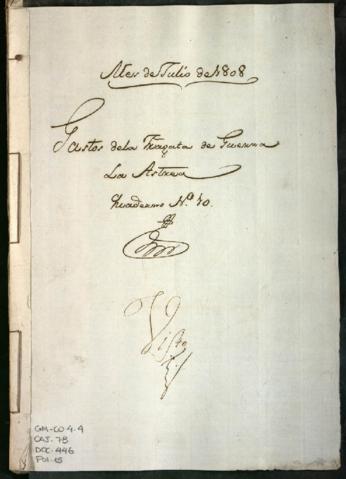 Mes de Julio de 1808
Gastos dela Fragata de Guerra
La Astrea
Quaderno Nº. 10.
Visto
GM-CO 4.4
CAJ. 78
DOC. 446
FOL. 15